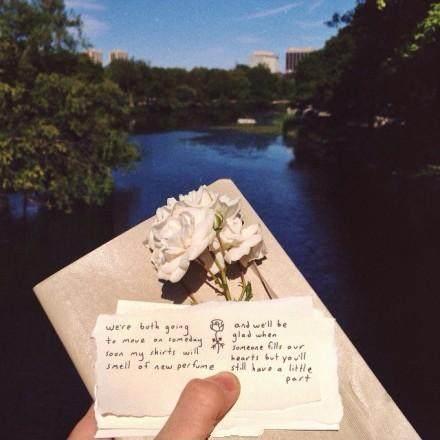 we're both going
to move on someday
soon my shirts will
smell of new perfume
and we'll be
glad when
someone fills our
hearts but you'll
still have a little
part